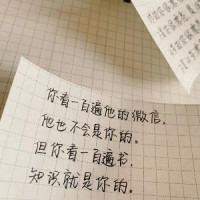 你看一百遍他的微信，
他也不会是你的。
但你看一百遍书，
知识就是你的。